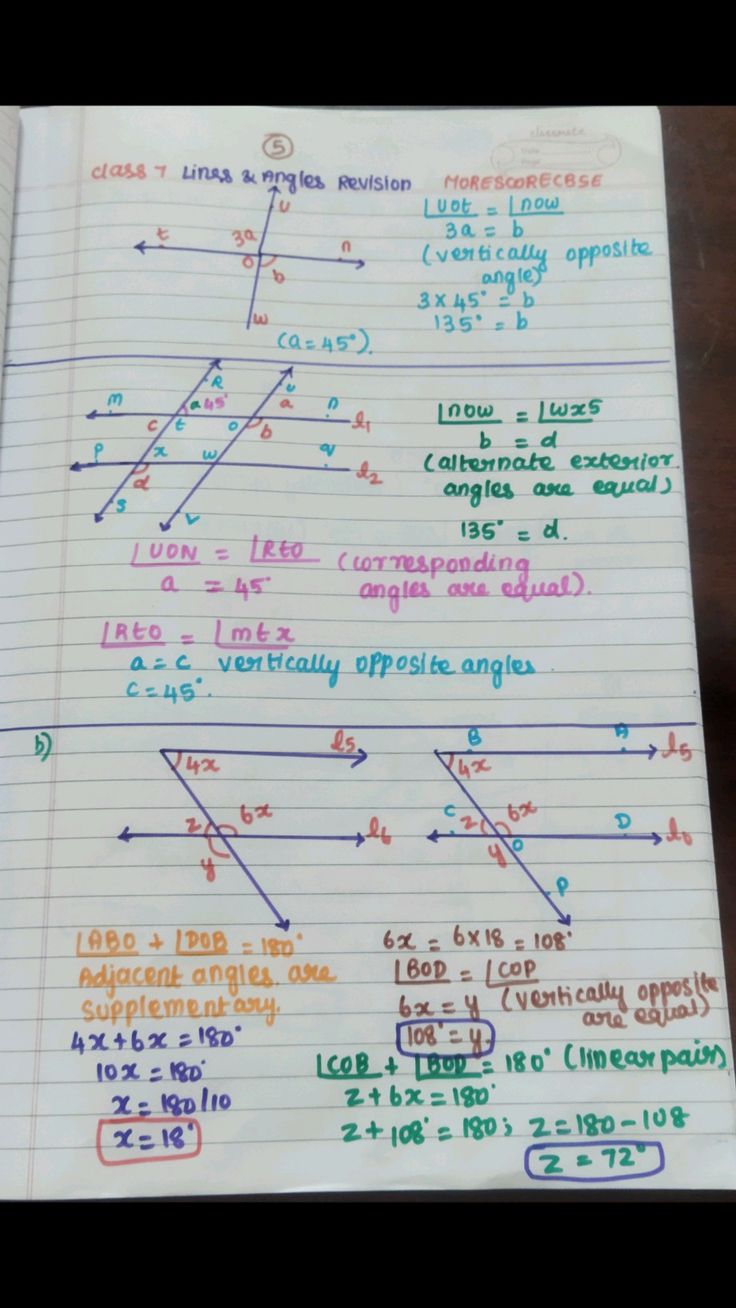 classmate
5
Class 7 Lines & Angles Revision MORESCORECBSE
u
t 3a n
o b
w
(a=45°).
∠UOt = ∠now
3a = b
(vertically opposite
angle)
3 x 45° = b
135° = b
R u
m a 45° a n
c t o b l₁
p x w q
d l₂
S V
∠now = ∠wxs
b = d
(alternate exterior
angles are equal)
135° = d.
∠UON = ∠Rto (corresponding
a = 45° angles are equal).
∠Rto = ∠mtx
a = c vertically opposite angles.
c = 45°.
b)
l5
4x
z 6x
l6
y
B A
4x l5
C z 6x D
y O l6
P
∠ABO + ∠DOB = 180°
Adjacent angles are
supplementary.
4x+6x=180°
10x = 180°
x = 180/10
x = 18°
6x = 6x18 = 108°
∠BOD = ∠COP
6x = y (vertically opposite
are equal)
108° = y.
∠COB + ∠BOD = 180° (linear pairs)
z + 6x = 180°
z + 108° = 180; z = 180 - 108
z = 72°